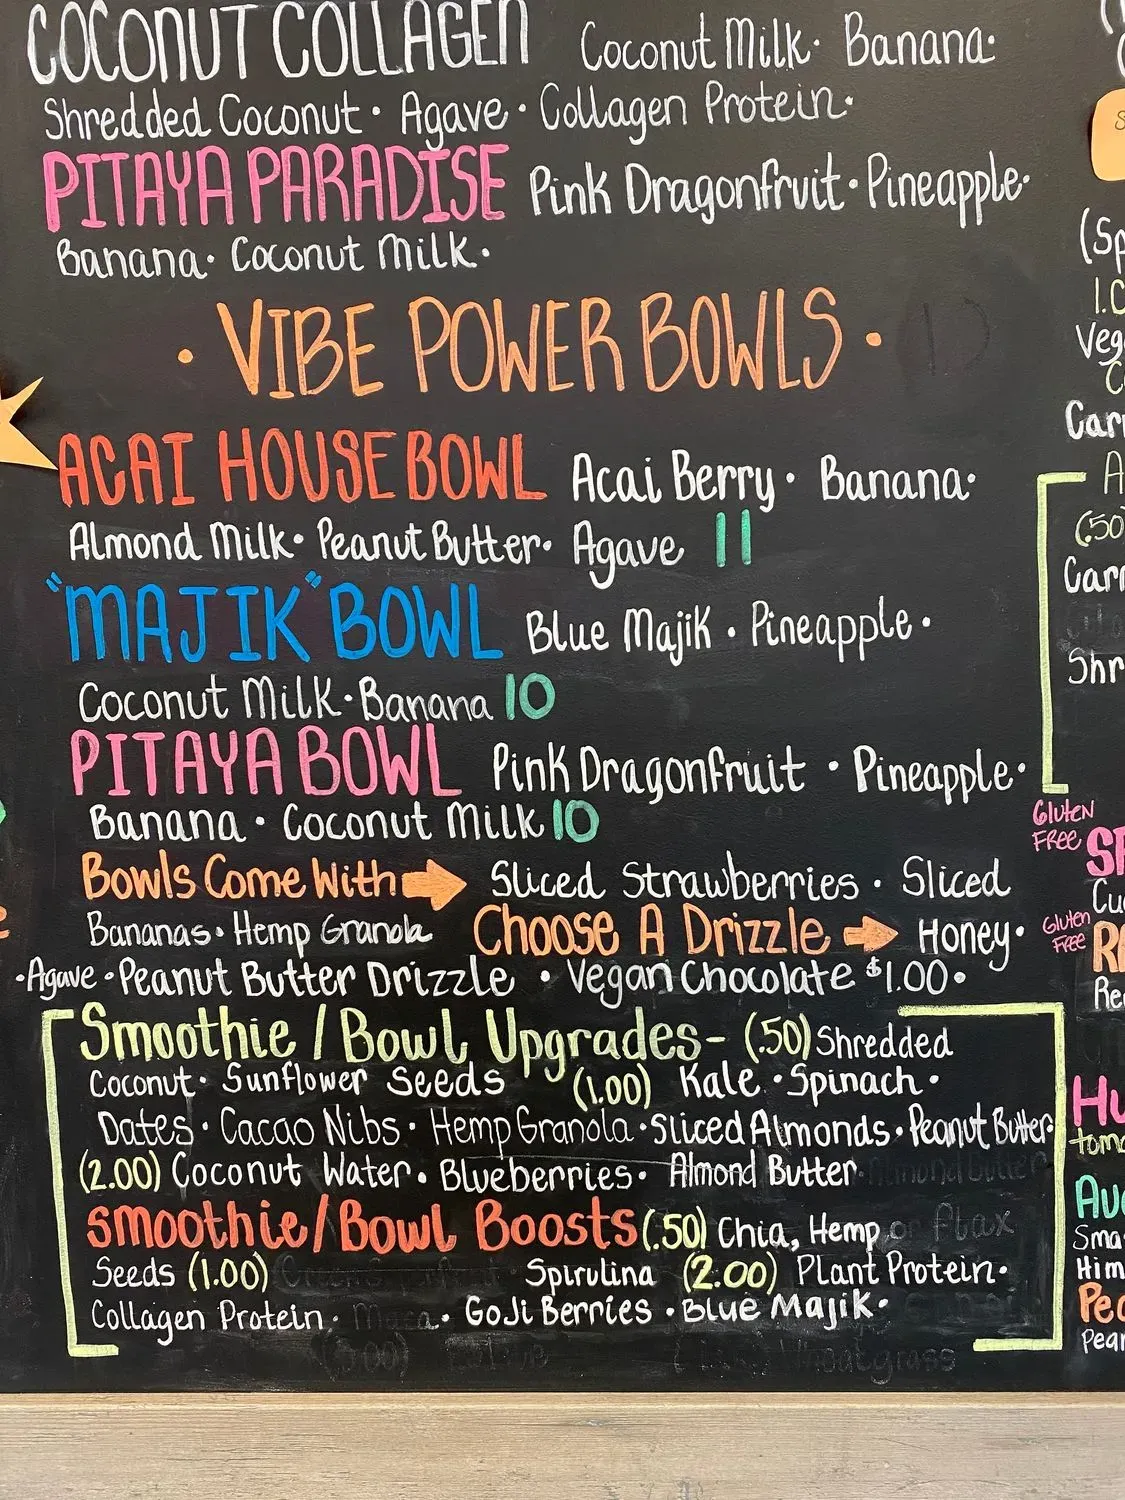 COCONUT COLLAGEN Coconut Milk· Banana·
Shredded Coconut · Agave · Collagen Protein·
PITAYA PARADISE Pink Dragonfruit· Pineapple·
Banana· Coconut Milk·
· VIBE POWER BOWLS ·
ACAI HOUSE BOWL Acai Berry · Banana·
Almond Milk· Peanut Butter· Agave 11
"MAJIK" BOWL Blue Majik · Pineapple ·
Coconut Milk· Banana 10
PITAYA BOWL Pink Dragonfruit · Pineapple·
Banana · Coconut Milk 10
Bowls Come With → Sliced Strawberries · Sliced
Bananas· Hemp Granola Choose A Drizzle → Honey·
·Agave ·Peanut Butter Drizzle · Vegan Chocolate $1.00·
Smoothie / Bowl Upgrades- (.50) Shredded
Coconut· Sunflower Seeds (1.00) Kale · Spinach ·
Dates · Cacao Nibs · Hemp Granola · Sliced Almonds · Peanut Butter·
(2.00) Coconut Water · Blueberries · Almond Butter· Almond Butter
Smoothie/Bowl Boosts (.50) Chia, Hemp or Flax
Seeds (1.00) Spirulina (2.00) Plant Protein·
Collagen Protein · Maca · Goji Berries · Blue Majik·
Wheatgrass
(Sp
1.0
Veg
(.50)
Shr
Gluten
Free
Gluten
Free
Re
Hu
toma
Sma
Him
Pea